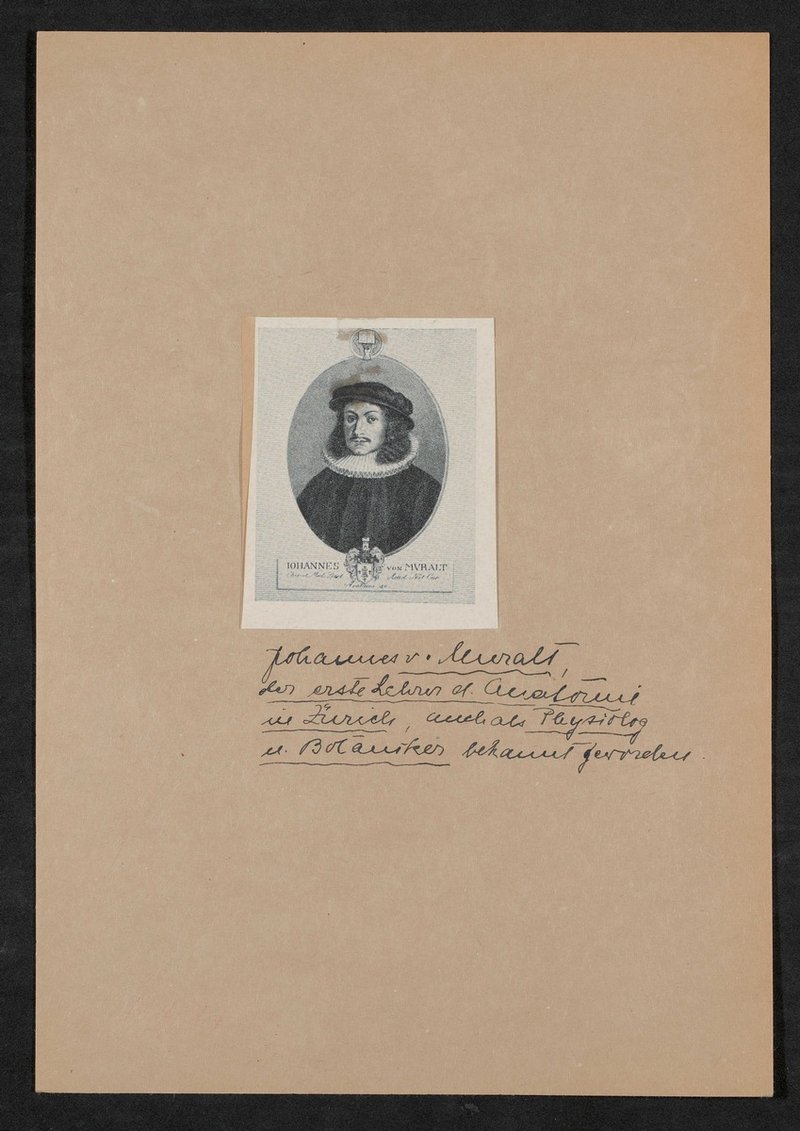 IOHANNES VON MVRALT
Johannes v. Muralt,
der erste Lehrer d. Anatomie
in Zürich, auch als Physiolog
u. Botaniker bekannt geworden.